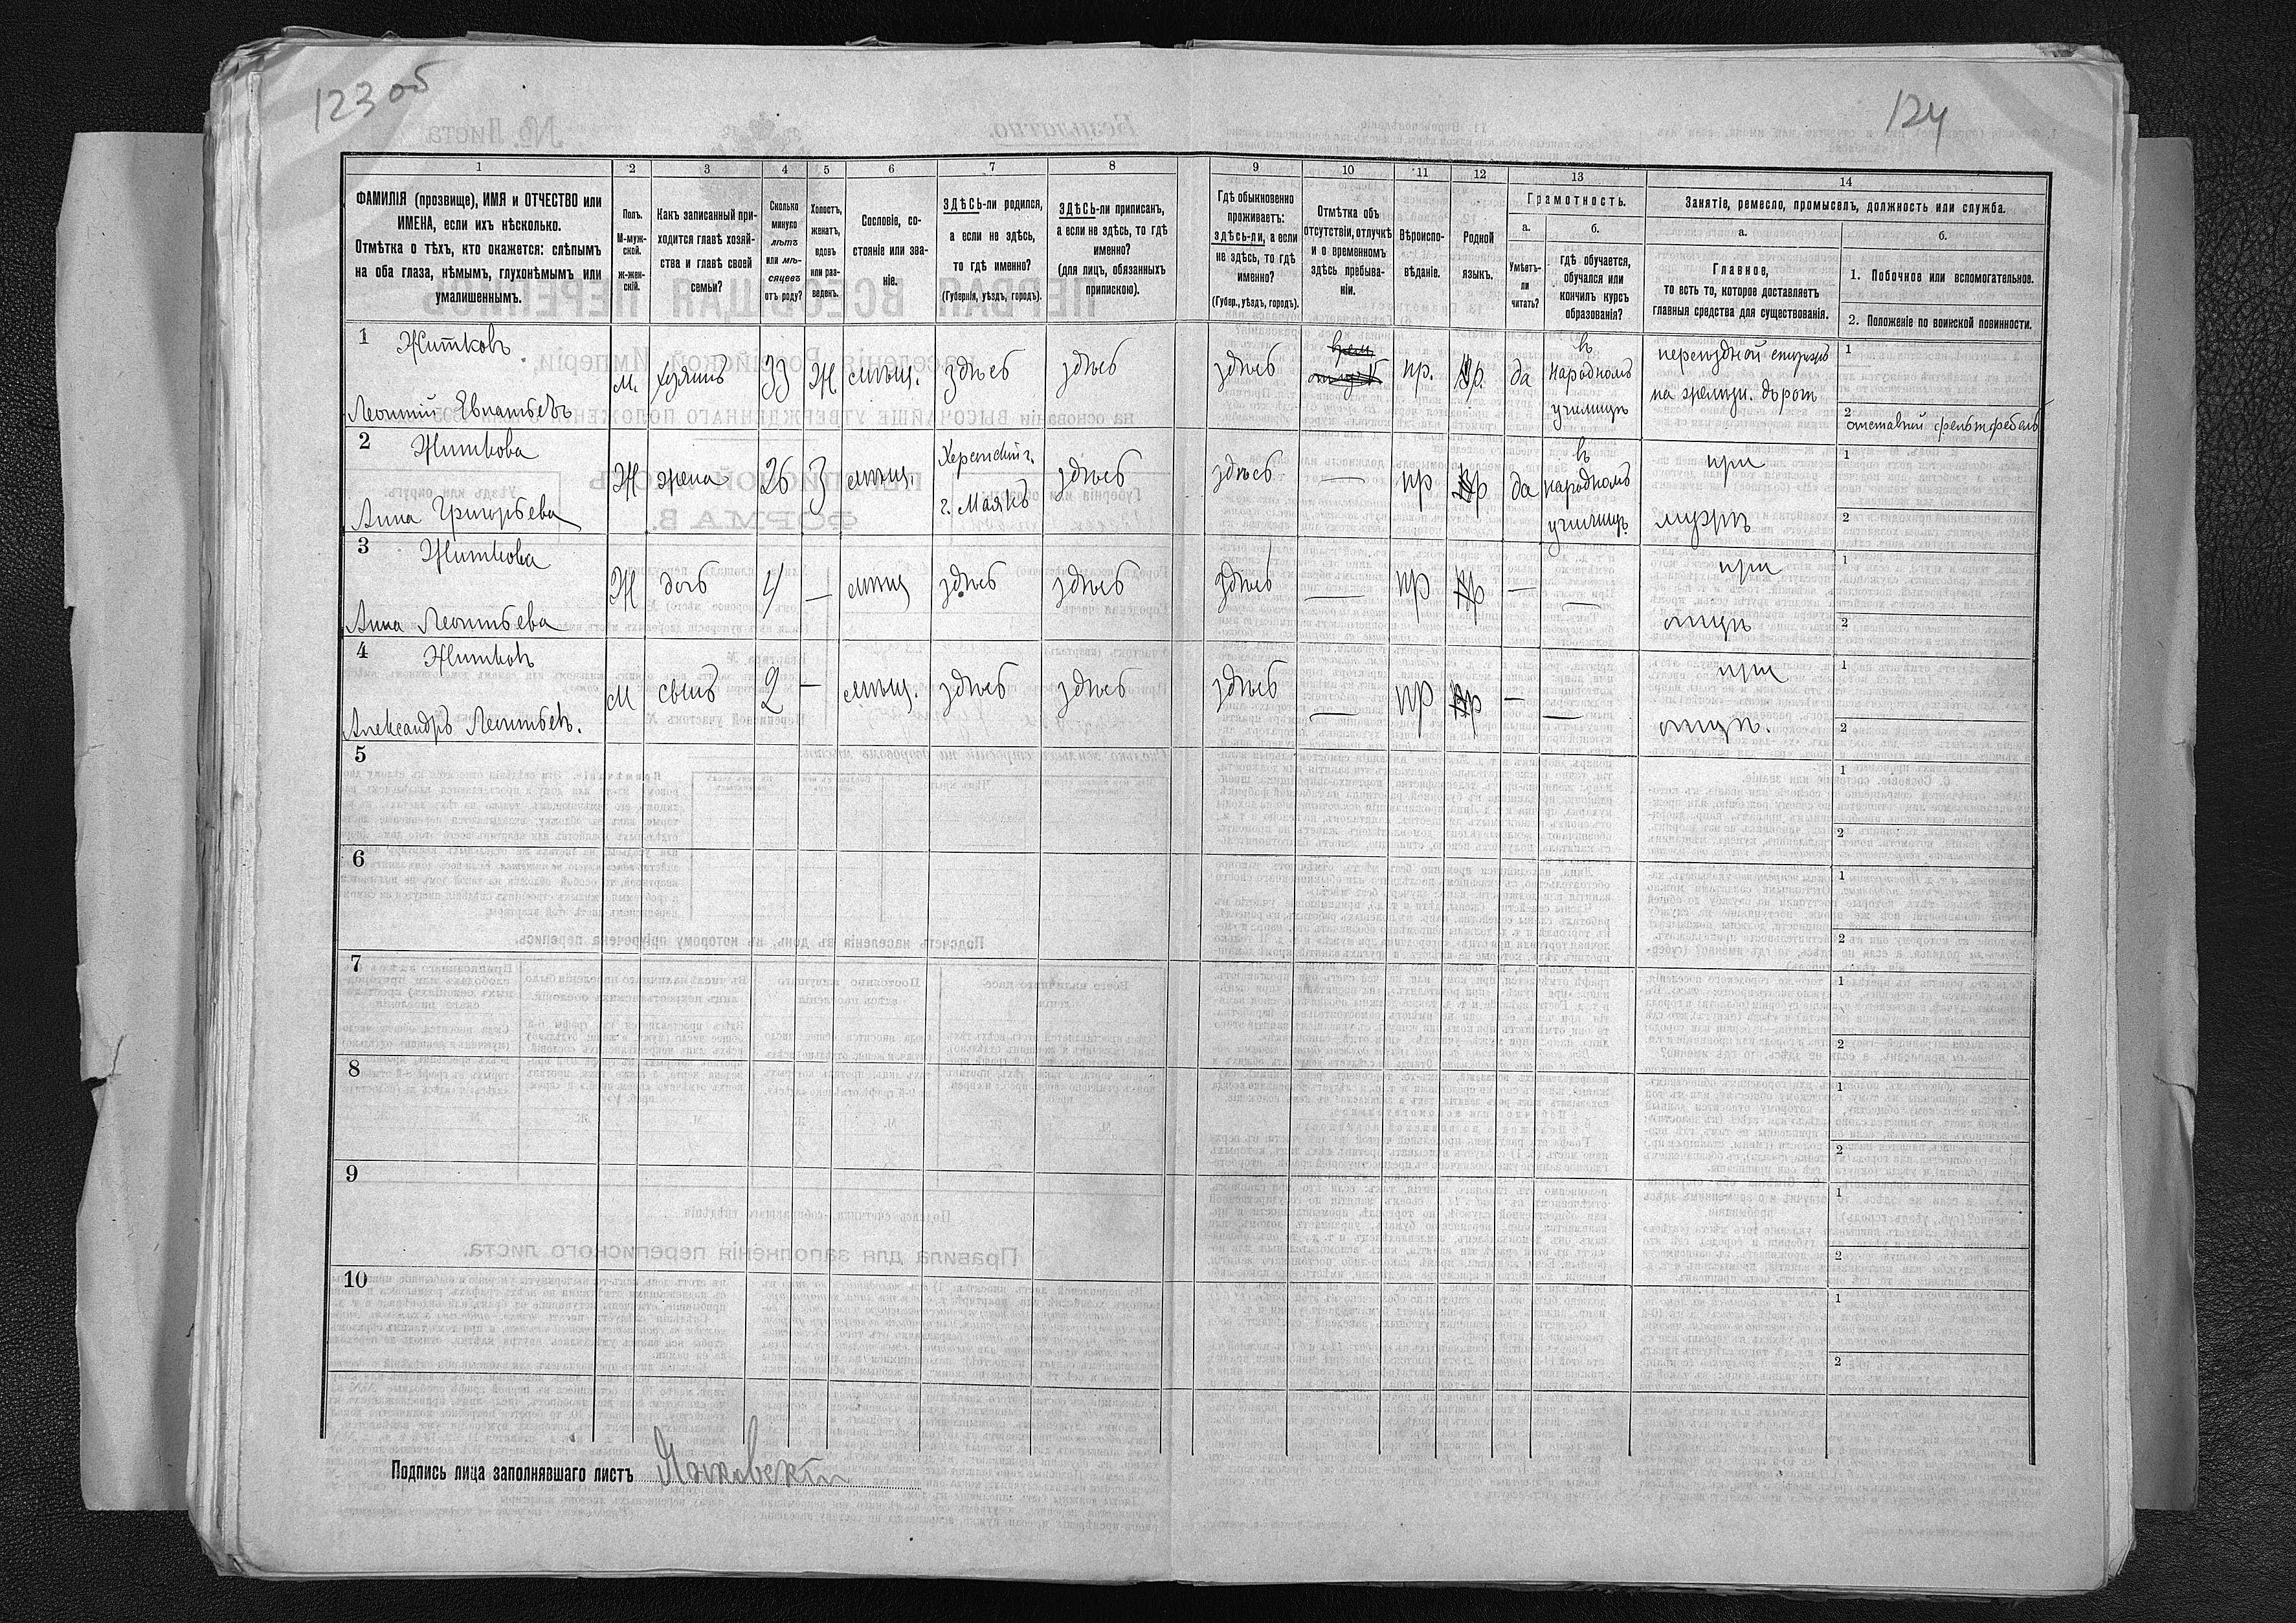 123 об
124
1 2 3 4 5 6 7 8 9 10 11 12 13 14
ФАМИЛІЯ (прозвище), ИМЯ и ОТЧЕСТВО или
ИМЕНА, если ихъ нѣсколько.
Отмѣтка о тѣхъ, кто окажется: слѣпымъ
на оба глаза, нѣмымъ, глухонѣмымъ или
умалишеннымъ.
Полъ.
М-муж-
ской.
ж-жен-
скій.
Какъ записанный при-
ходится главѣ хозяй-
ства и главѣ своей
семьи?
Сколько
минуло
лѣтъ
или мѣ-
сяцевъ
отъ роду?
Холостъ,
женатъ,
вдовъ
или раз-
веденъ.
Сословіе, со-
стояніе или зва-
ніе.
ЗДѢСЬ-ли родился,
а если не здѣсь,
то гдѣ именно?
(Губернія, уѣздъ, городъ).
ЗДѢСЬ-ли приписанъ,
а если не здѣсь, то гдѣ
именно?
(для лицъ, обязанныхъ
припискою).
Гдѣ обыкновенно
проживаетъ:
здѣсь-ли, а если
не здѣсь, то гдѣ
именно?
(Губер., уѣздъ, городъ).
Отмѣтка объ
отсутствіи, отлучкѣ
и о временномъ
здѣсь пребыва-
ніи.
Вѣроиспо-
вѣданіе.
Родной
языкъ.
Грамотность.
а.
Умѣетъ-
ли
читать?
б.
гдѣ обучается,
обучался или
кончилъ курсъ
образованія?
Занятіе, ремесло, промыселъ, должность или служба.
а.
Главное,
то есть то, которое доставляетъ
главныя средства для существованія.
б.
1. Побочное или вспомогательное.
2. Положеніе по воинской повинности.
1 Житковъ
Леонтій Евпатьевъ
м. хозяинъ 33 Ж мѣщ. здѣсь здѣсь здѣсь пр. р. да
въ
народномъ
училищѣ
переѣздной сторожъ
на желѣзн. дорогѣ
1
2
отставной фельдфебель
2 Житкова
Анна Григорьева
Ж жена 26 З мѣщ.
Херсонской г.
г. Маякъ
здѣсь здѣсь — пр р да
въ
народномъ
училищѣ
при
мужѣ
1
2
3 Житкова
Анна Леонтьева
Ж дочь 4 — мѣщ здѣсь здѣсь здѣсь — пр р — —
при
отцѣ
1
2
4 Житковъ
Александръ Леонтьевъ.
М сынъ 2 — мѣщ. здѣсь здѣсь здѣсь — пр р — —
при
отцѣ.
1
2
5
1
2
6
1
2
7
1
2
8
1
2
9
1
2
10
1
2
Подпись лица заполнявшаго листъ